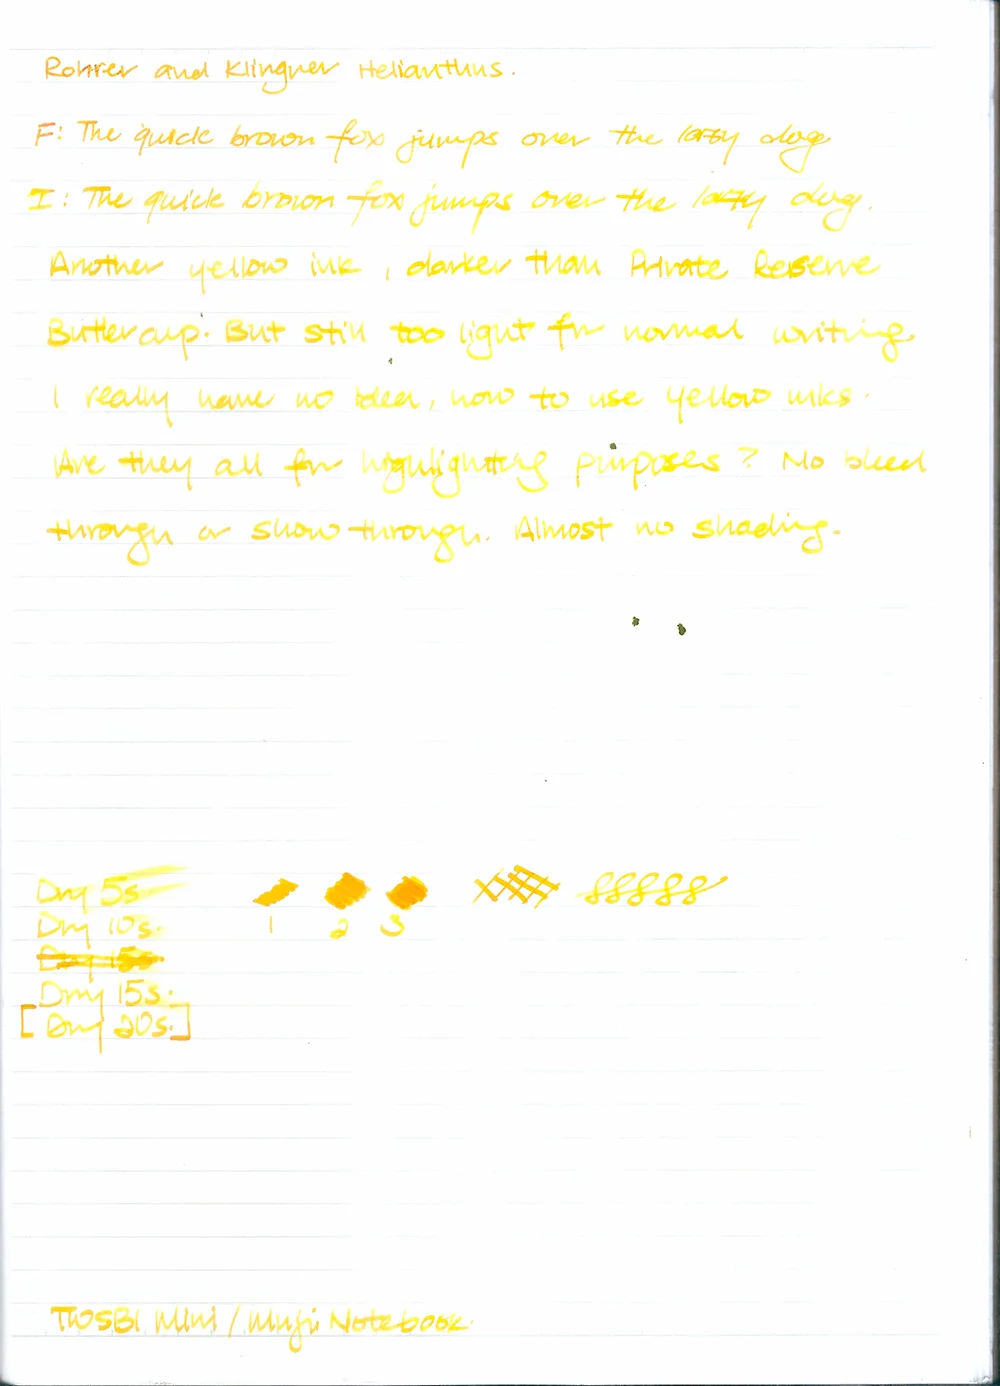 Rohrer and Klingner Helianthus.
F: The quick brown fox jumps over the lazy dog
I: The quick brown fox jumps over the lazy dog.
Another yellow ink, darker than Private Reserve
Buttercup. But still too light for normal writing.
I really have no idea, how to use yellow inks.
Are they all for highlighting purposes? No bleed
through or show through. Almost no shading.
Dry 5s
Dry 10s.
Dry 15s
Dry 15s.
[Dry 20s.]
1 2 3
TWSBI Mini / Muji Notebook.